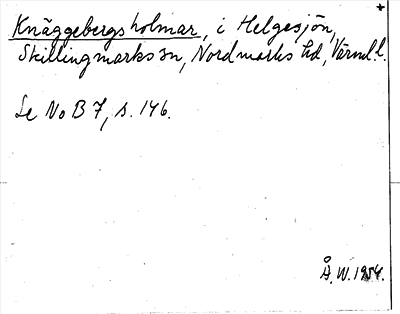 Knäggebergsholmar, i Helgesjön,
Skillingmarks sn, Nordmarks hd, Värml. l.
Se No B 7, s. 146.
Å. W. 1954.